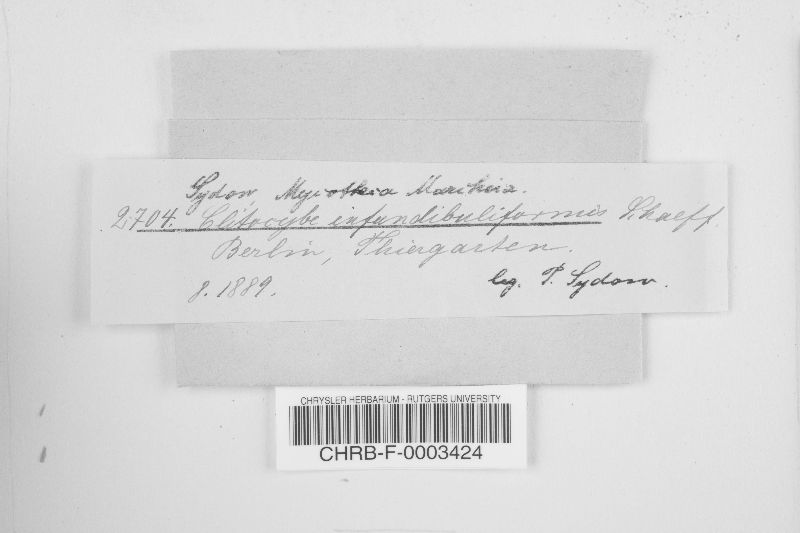 Sydow, Mycotheca Marchica.
2704. Clitocybe infundibuliformis Schaeff.
Berlin, Thiergarten.
8. 1889. leg. P. Sydow.
CHRYSLER HERBARIUM - RUTGERS UNIVERSITY
CHRB-F-0003424